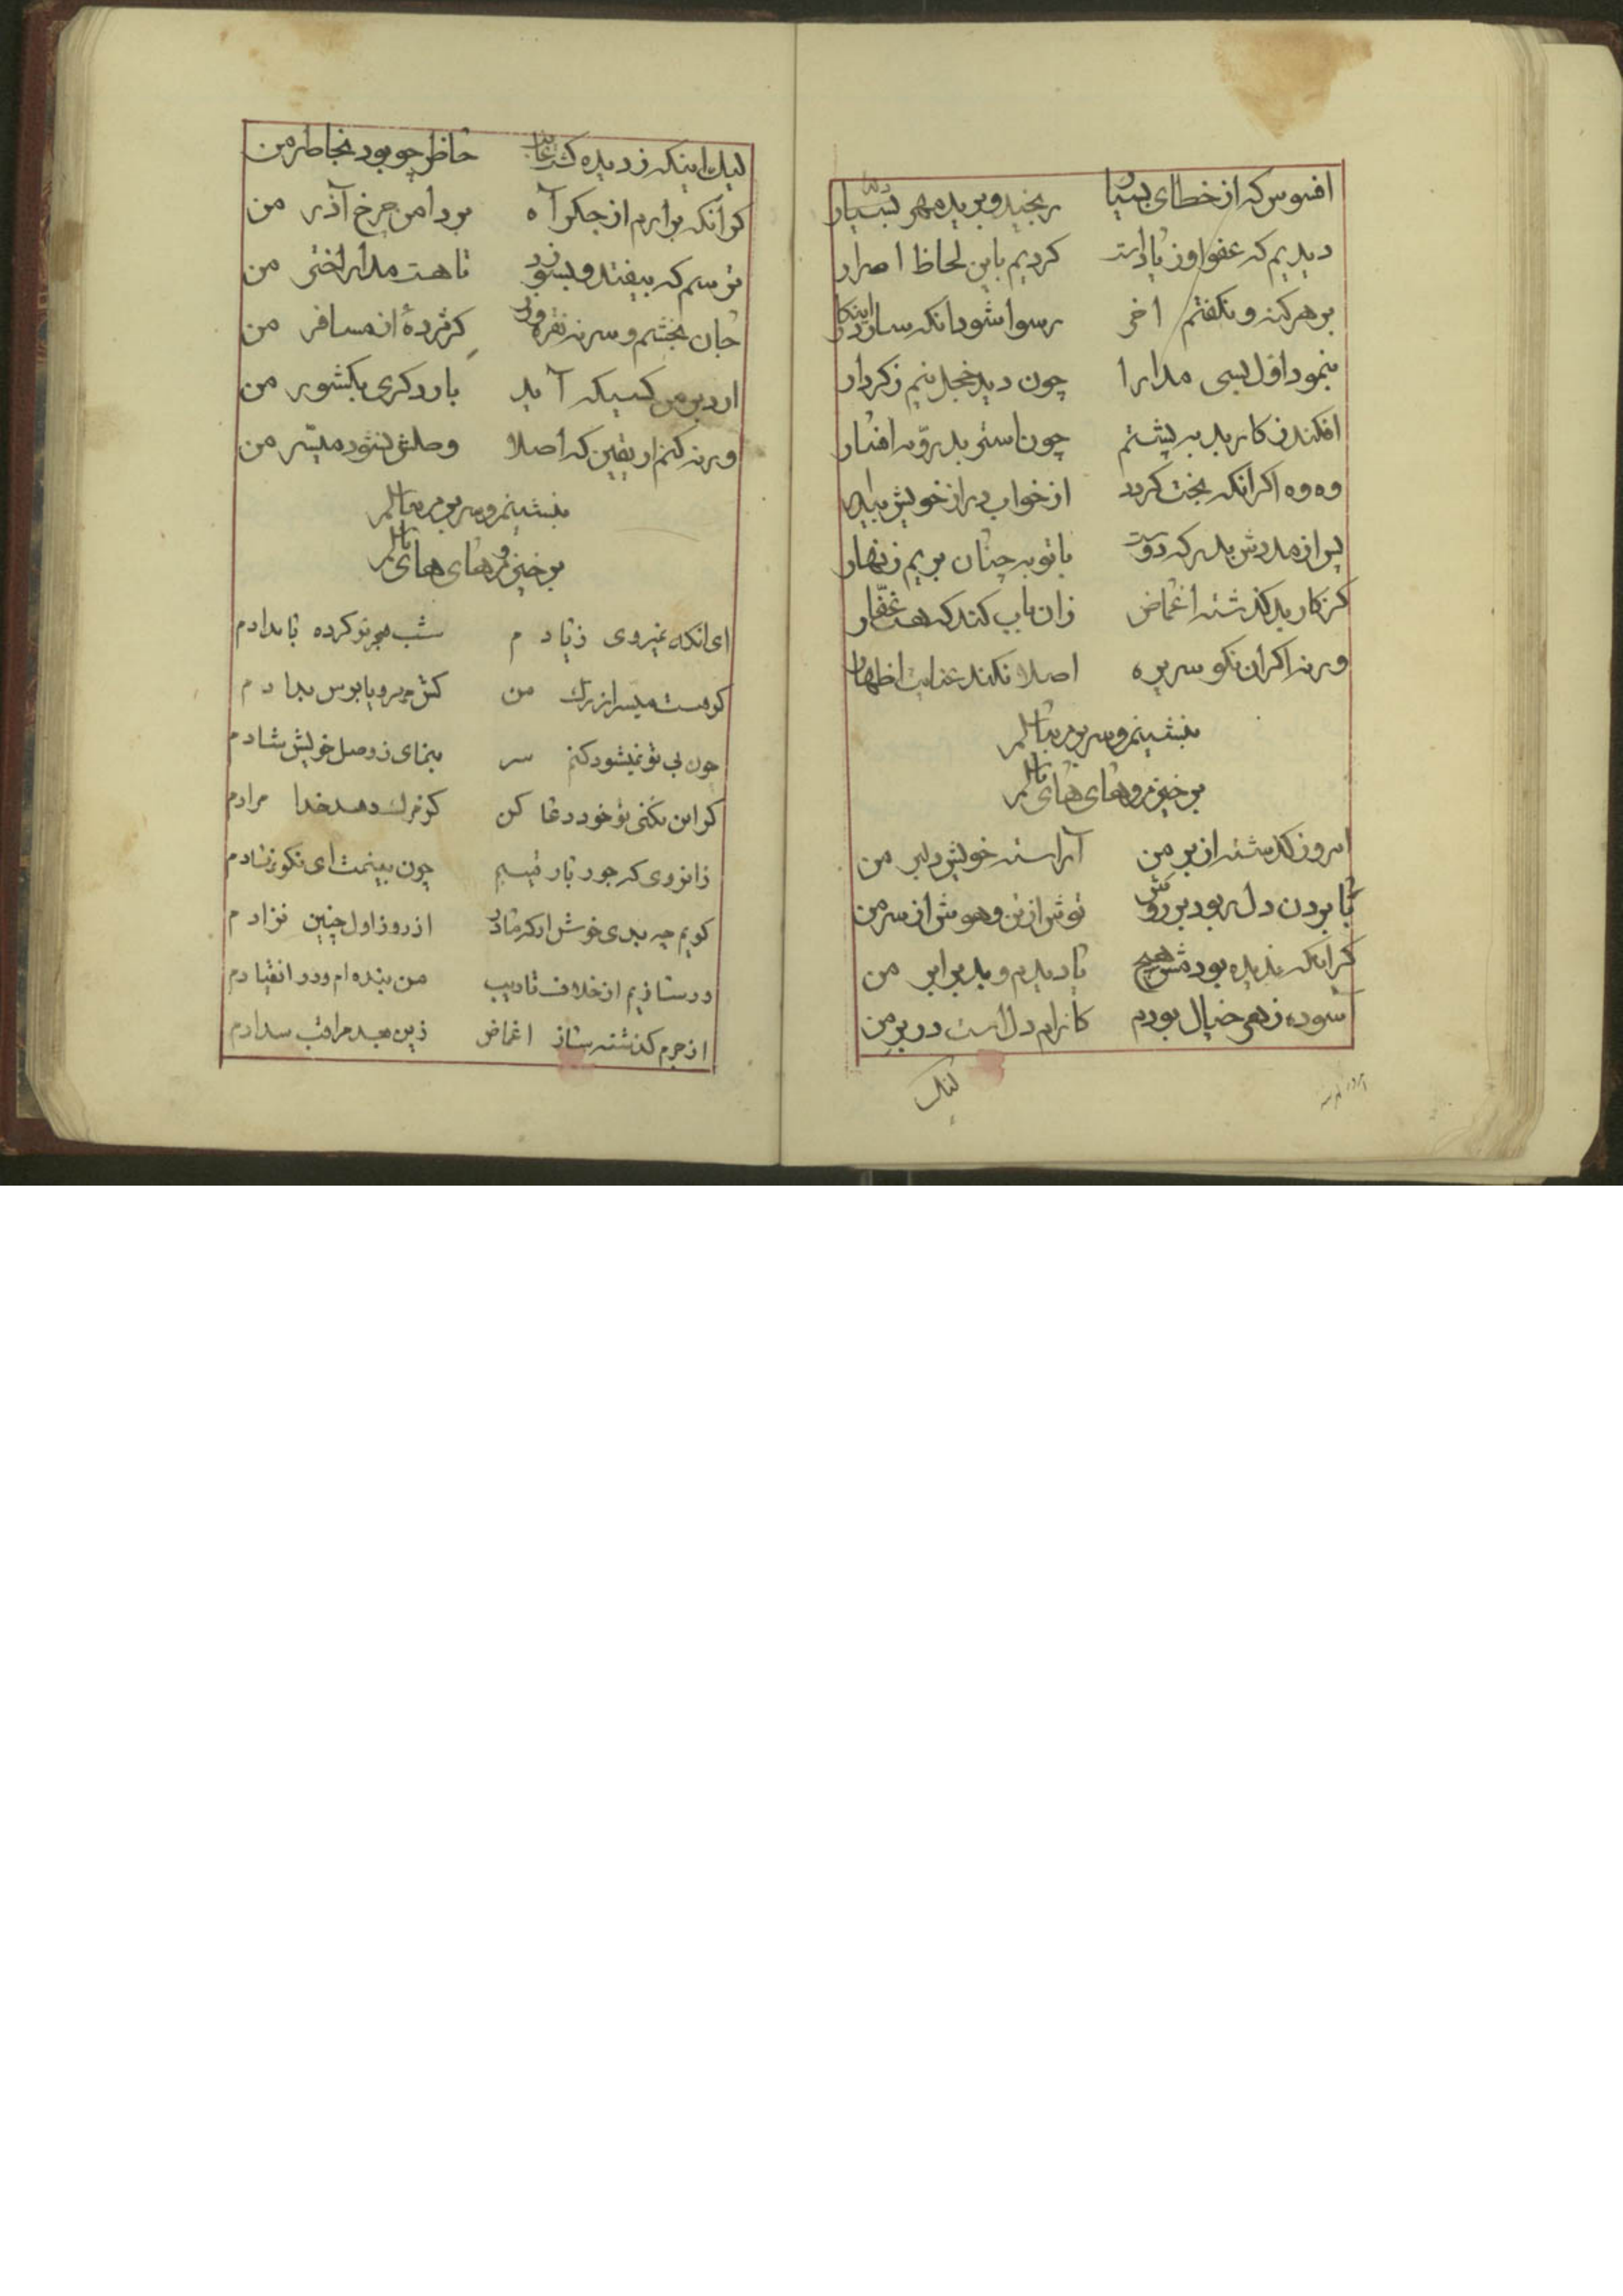 افسوس که از خطای بسیار رنجید و برید مهر بسیار
دیدیم که عفو او زیاد است کردیم باین لحاظ اصرار
بر هر که نکفتم اخر رسوا شود انکه سازد اینکار
بنمود اول بسی مدارا چون دید خجل نیم زکردار
افکند کار بد به پشتم چون
وه وه اکر انکه بخت کردد از خواب دراز خویش بیدار
پس از مدوش بدر که دوست با توبه چنان بریم زنهار
کز کار بد کذشته اغماض زان باب کند که هست غفّار
ورنه اکر ان نکو سریره اصلا نکند عنایت اظهار
بنشینم و سر بریر بالم
برخیزم و های های نالم
امروز کذشته از بر من آراسته خویش دلبر من
تا بردن دل بود بر روش توش از تن و هوش از سر من
کر اینکه ندیده بودمش هیچ تا دیدم و بد برابر من
آسوده زهر خیال بودم کارام دل است در بر من
لیک
لیک اینکه ز دیده کشت غایب حاظر چو بود بخاطر من
کر آنکه برارم از جکر آه برد امن چرخ آذر من
ترسم که بیفتد و بسوزد تا هست مدار اختر من
جان بخشم و سر نه نقره و زر کر مژدهٔ از مسافر من
ارد بر من کسیکه آید بار دکری بکشور من
ورنه کنم ار یقین که اصلا وصلش نشود میسّر من
بنشینم و سر بریر بالم
برخیزم و های های نالم
ای انکه نمیروی زیادم شب هجر تو کرده بامدادم
کو هست میسر از من کش
چون بی تو نمیشود کنم سر بنمای ز وصل خویش شادم
کر این نکنی تو خود دعا کن کو مرک دهد خدا مرادم
زانروی که جور یار چون بینمت ای نکو نژادم
کویم چه بدی خوش ار که مادر از روز اول چنین نزادم
ور سازیم از خلاف تادیب من بنده‌ام و در انقیادم
از جرم کذشته ساز اغماض زین بعد مراقب سدادم